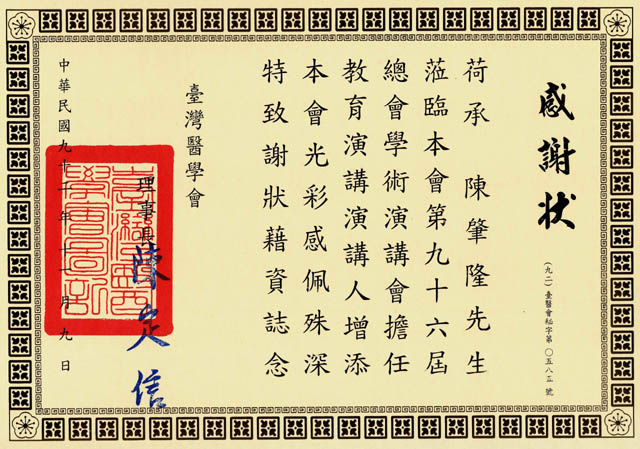 感謝狀
(九二)臺醫會秘字第〇五八三號
荷承 陳肇隆先生
蒞臨本會第九十六屆
總會學術演講會擔任
教育演講演講人增添
本會光彩感佩殊深
特致謝狀藉資誌念
臺灣醫學會
理事長 陳定信
中華民國九十二年十一月九日